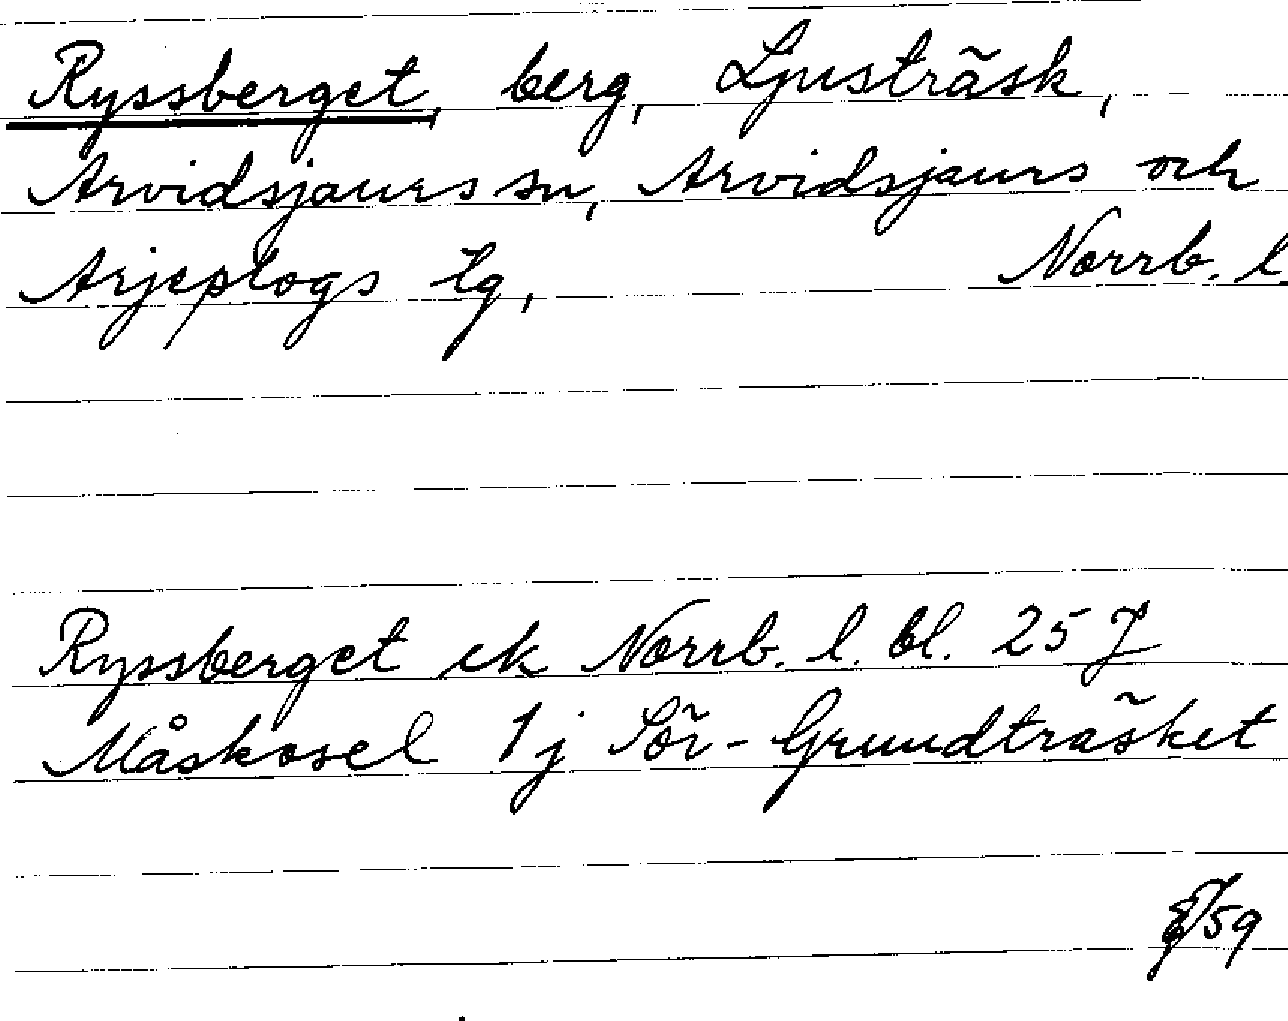 Ryssberget, berg, Ljusträsk,
Arvidsjaurs sn, Arvidsjaurs och
Arjeplogs tg, Norrb. l
Ryssberget ek Norrb. l. bl. 25 J
Måskosel 1 j Sör-Grundträsket
/59